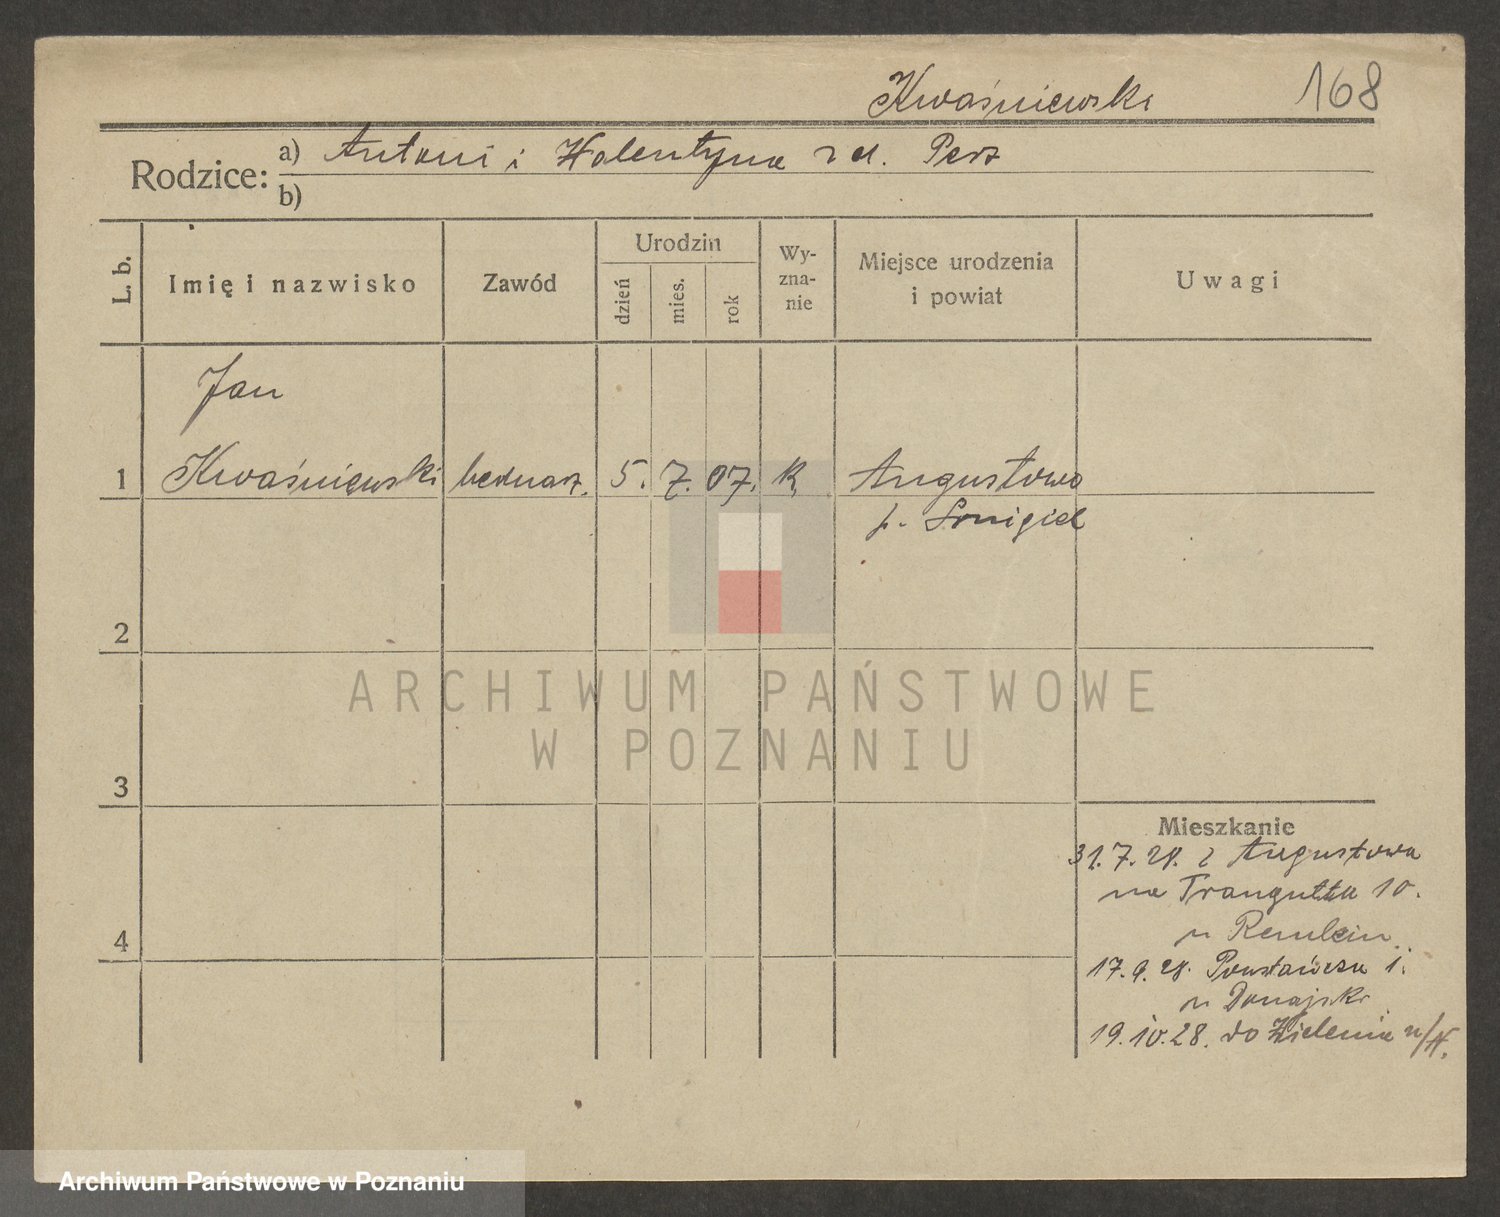 Kwaśniewski 168
Rodzice: a) Antoni i Walentyna z d. Perz
b)
L. b. Imię i nazwisko Zawód Urodzin dzień mies. rok Wy-zna-nie Miejsce urodzenia i powiat Uwagi
Jan
1 Kwaśniewski bednarz. 5. 7. 07. K. Augustowo
p. Śmigiel
2
ARCHIWUM PAŃSTWOWE
W POZNANIU
3
Mieszkanie
31.7.28. z Augustowa
na Traugutta 10.
u
4
17.9.28. Powstańcza 1.
u
19.10.28. do n/N.
Archiwum Państwowe w Poznaniu